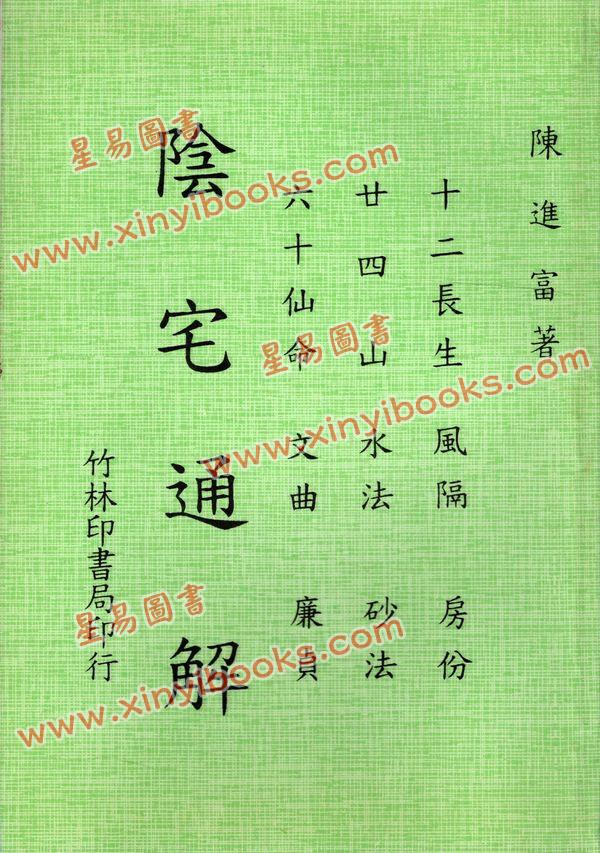 陳進富著
十二長生 風隔 房份
廿四山 水法 砂法
六十仙命 文曲 廉貞
陰宅通解
竹林印書局印行
星易圖書
www.xinyibooks.com
星易圖書
www.xinyibooks.com
星易圖書
www.xinyibooks.com